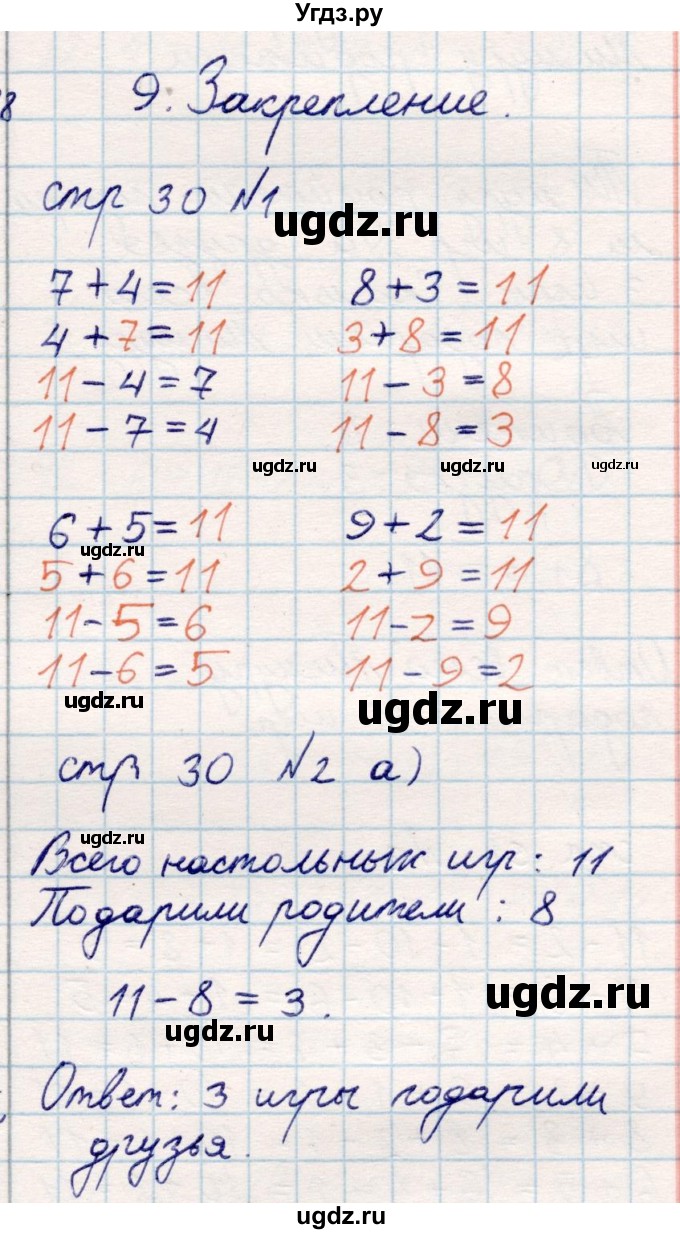 Угдз.ру
8
9. Закрепление.
стр 30 №1
ugdz.ru
7 + 4 = 11 8 + 3 = 11
4 + 7 = 11 3 + 8 = 11
11 - 4 = 7 11 - 3 = 8
11 - 7 = 4 11 - 8 = 3
ugdz.ru ugdz.ru ugdz.ru
6 + 5 = 11 9 + 2 = 11
ugdz.ru
5 + 6 = 11 2 + 9 = 11
11 - 5 = 6 11 - 2 = 9
11 - 6 = 5 11 - 9 = 2
ugdz.ru ugdz.ru
стр 30 №2 а)
ugdz.ru
Всего настольных игр: 11
Подарили родители: 8
11 - 8 = 3.
ugdz.ru ugdz.ru
Ответ: 3 игры подарили
друзья.
ugdz.ru